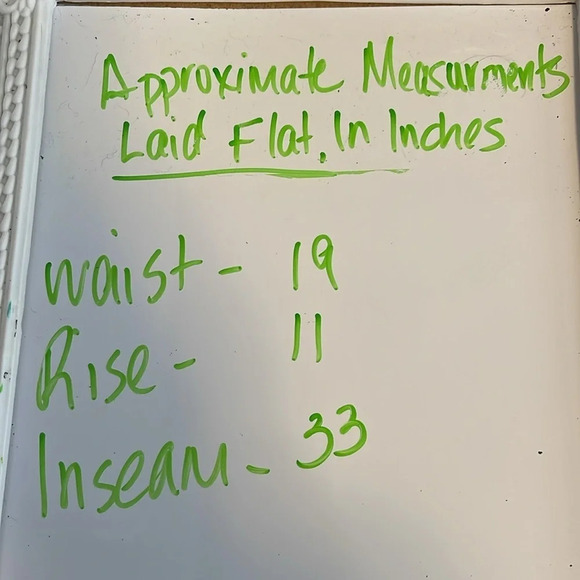 Approximate Measurments
Laid Flat, In Inches
waist - 19
Rise - 11
Inseam - 33